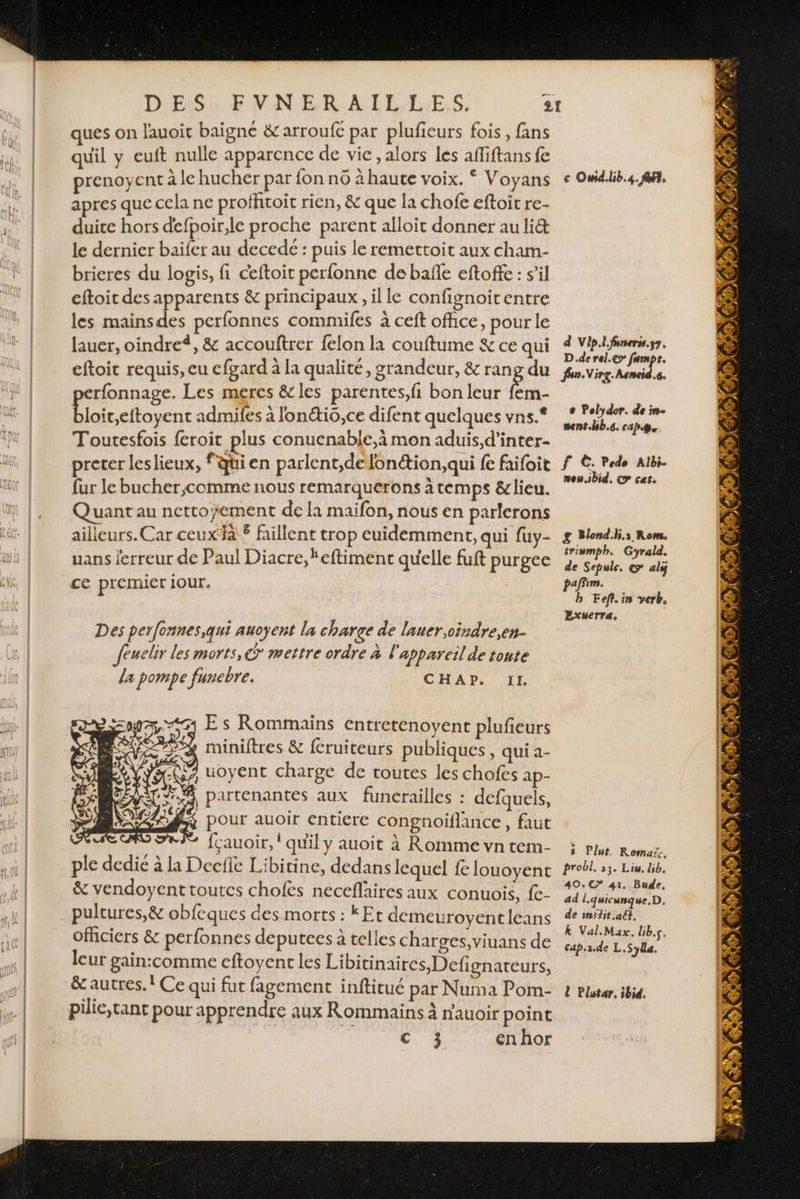 DES FVNERAILLES. 21
ques on l'auoit baigné & arrousé par plusieurs fois, sans
qu'il y eust nulle apparence de vie, alors les assistans se
prenoyent à le hucher par son nō à haute voix. ᶜ Voyans
apres que cela ne proffitoit rien, & que la chose estoit re-
duite hors d'espoir, le proche parent alloit donner au lict
le dernier baiser au decedé : puis le remettoit aux cham-
brieres du logis, si c'estoit personne de basse estoffe : s'il
estoit des apparents & principaux, il le consignoit entre
les mains des personnes commises à cest office, pour le
lauer, oindreᵈ, & accoustrer selon la coustume & ce qui
estoit requis, eu esgard à la qualité, grandeur, & rang du
personnage. Les meres & les parentes, si bon leur sem-
bloit, estoyent admises à l'onctiō, ce disent quelques vns.ᵉ
Toutesfois seroit plus conuenable, à mon aduis, d'inter-
preter les lieux, ᶠ qui en parlent, de l'onction, qui se faisoit
sur le bucher, comme nous remarquerons à temps & lieu.
Quant au nettoyement de la maison, nous en parlerons
ailleurs. Car ceux là ᵍ faillent trop euidemment, qui suy-
uans l'erreur de Paul Diacre, ʰ estiment qu'elle fust purgee
ce premier iour.
Des personnes, qui auoyent la charge de lauer, oindre, en-
seuelir les morts, & mettre ordre à l'appareil de toute
la pompe funebre. CHAP. II.
Es Rommains entretenoyent plusieurs
ministres & seruiteurs publiques, qui a-
uoyent charge de toutes les choses ap-
partenantes aux funerailles : desquels,
pour auoir entiere congnoissance, faut
sçauoir, ⁱ qu'il y auoit à Romme vn tem-
ple dedié à la Deesse Libitine, dedans lequel se louoyent
& vendoyent toutes choses necessaires aux conuois, se-
pultures, & obseques des morts : ᵏ Et demeuroyent leans
officiers & personnes deputees à telles charges, viuans de
leur gain: comme estoyent les Libitinaires, Designateurs,
& autres. ˡ Ce qui fut sagement institué par Numa Pom-
pilie, tant pour apprendre aux Rommains à n'auoir point
c 3 en hor
c Ouid. lib. 4. fast.
d Vlp. l. funeris. 37.
D. de rel. & sumpt.
fun. Virg. Aeneid. 6.
e Polydor. de in-
uent. lib. 6. cap. 9.
f C. Pedo Albi-
nou. ibid. & cat.
g Blond. li. 2. Rom.
triumph. Gyrald.
de Sepulc. & alij
passim.
h Fest. in verb.
Exuerræ.
i Plut. Romaic.
probl. 23. Liu. lib.
40. & 41. Bude.
ad l. quicunque. D.
de instit. act.
k Val. Max. lib. 5.
cap. 2. de L. Sylla.
l Plutar. ibid.